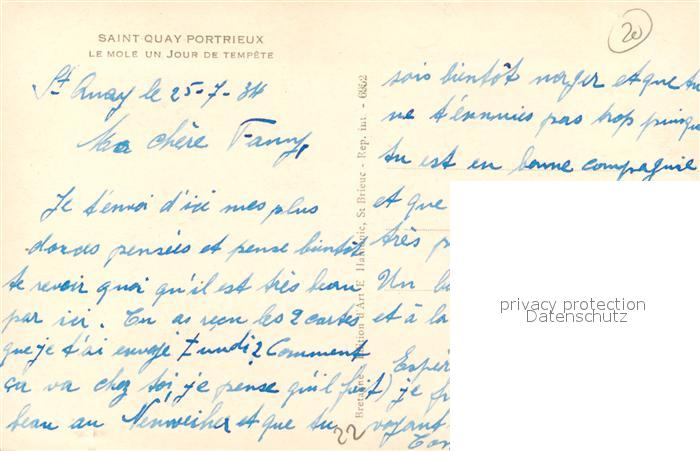 SAINT-QUAY-PORTRIEUX
LE MOLE UN JOUR DE TEMPÊTE
St Quay le 25-7-34
Ma chère Fanny,
Je t'envoi d'ici mes plus
douces pensées et pense bientôt
te revoir quoi qu'il est très beau
par ici. Tu as reçu les 2 cartes
que je t'ai envoyé Lundi? Comment
ça va chez toi, je pense qu'il fait
beau au Neuweiher et que tu
22
Bretagne - Edition d'Art E. Hamonic, St Brieuc - Rep. int. - 6882
20
sois bientôt nager et que tu
ne t'ennuies pas trop puisque
tu est en bonne compagnie
et que
très
Un
et à la
je
voyant
privacy protection
Datenschutz